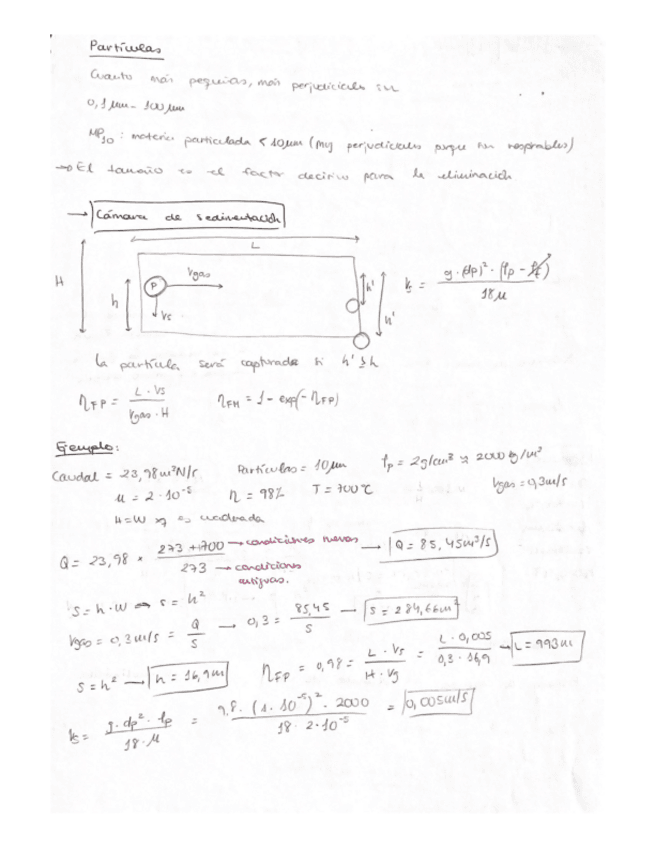 Partículas
Cuanto más pequeñas, más perjudiciales son
0,1 µm - 100 µm
MP10 : materia particulada < 10 µm (muy perjudiciales porque son respirables)
→ El tamaño es el factor decisivo para la eliminación
→ Cámara de sedimentación
L
H
h
P
Vgas
Vs
h'
h'
Vs = g · (dp)² · (ρp - ρf) / 18 µ
La partícula será capturada si h' ≥ h
ηFP = L · Vs / Vgas · H
ηFM = 1 - exp(- ηFP)
Ejemplo:
Caudal = 23,98 m³N/s
Partículas = 10 µm
ρp = 2g/cm³ ≈ 2000 kg/m³
µ = 2 · 10⁻⁵
η = 98%
T = 700 ºC
Vgas = 0,3 m/s
H = W es cuadrada
Q = 23,98 * 273 + 700 / 273 → condiciones nuevas → condiciones antiguas. → Q = 85,45 m³/s
S = h · W → S = h²
Vgas = 0,3 m/s = Q / S → 0,3 = 85,45 / S → S = 284,66 m²
S = h² → h = 16,9 m
ηFP = 0,98 = L · Vs / H · Vg = L · 0,005 / 0,3 · 16,9 → L = 993 m
Vs = g · dp² · ρp / 18 · µ = 9,8 · (1 · 10⁻⁵)² · 2000 / 18 · 2 · 10⁻⁵ = 0,005 m/s